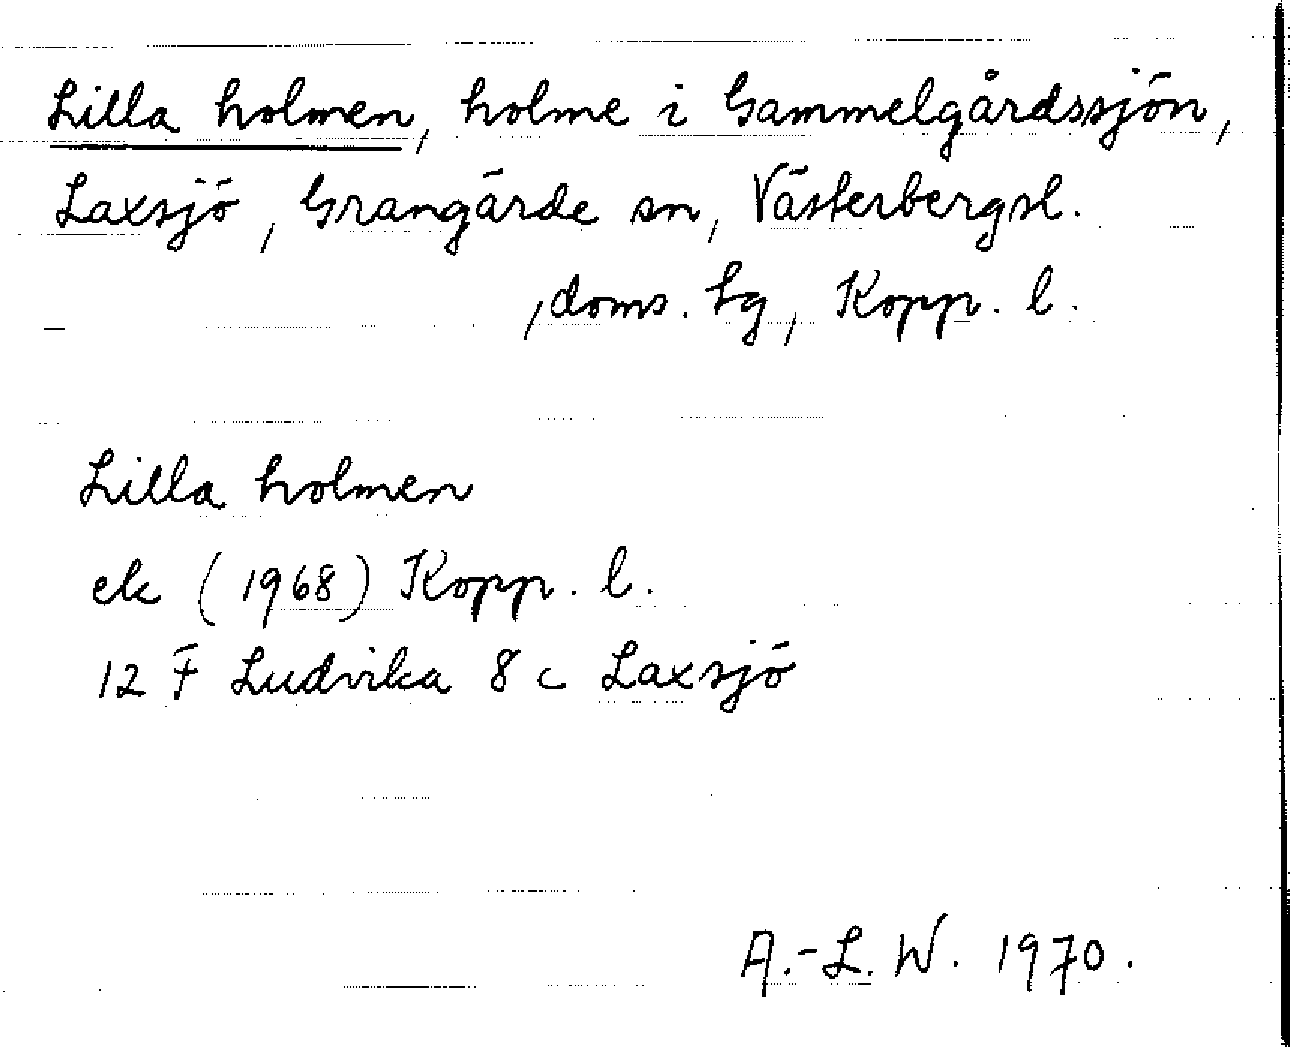 Lilla holmen, holme i Gammelgårdssjön,
Laxsjö, Grangärde sn, Västerbergsl.
, doms. hg, Kopp. l.
Lilla holmen
ek (1968) Kopp. l.
12 F Ludvika 8 c Laxsjö
A.-L. W. 1970.